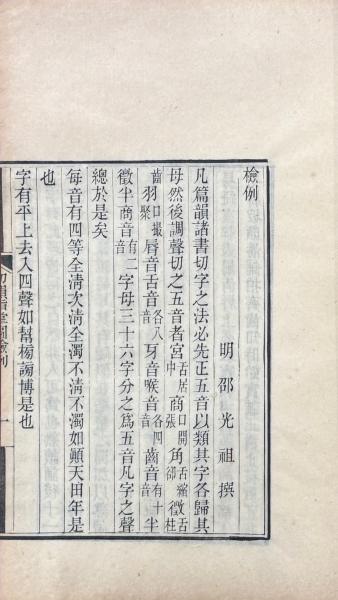 檢例
明邵光祖撰
凡篇韻諸書切字之法必先正五音以類其字各歸其
母然後調聲切之五音者宮舌居中商口開張角舌縮卻徵舌柱
齒羽口撮聚脣音舌音各八音牙音喉音各四音齒音有十音半
徵半商音有二音字母三十六字分之爲五音凡字之聲
總於是矣
每音有四等全清次清全濁不清不濁如顛天田年是
也
字有平上去入四聲如幫榜謗博是也